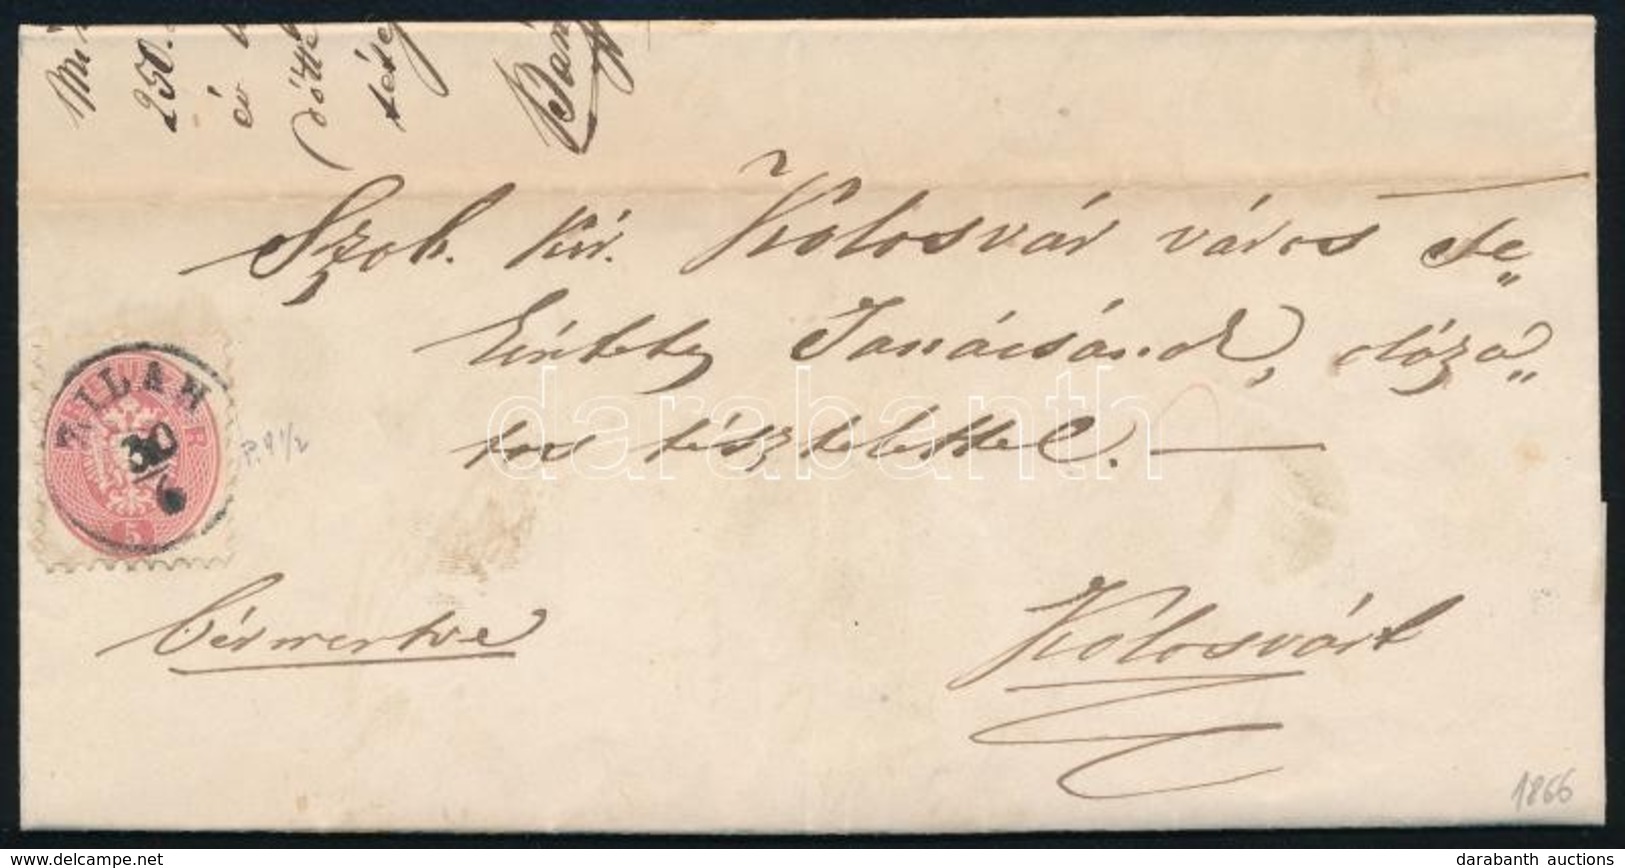 250.
év
Szab. kir. Kolosvár város te„
kintetes Tanácsának, alázá„
tos tisztelettel.
ZILAH
30/6
5
P. 9 1/2
bérmentve
Kolosvárt
1866
darabanth
delcampe.net
darabanth auctions